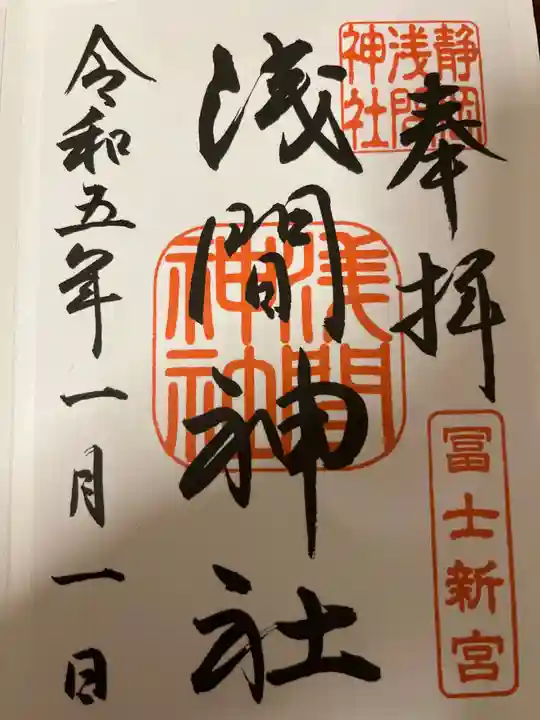 奉拝
静岡
浅間
神社
冨士新宮
浅間神社
浅間
神社
令和五年一月一日